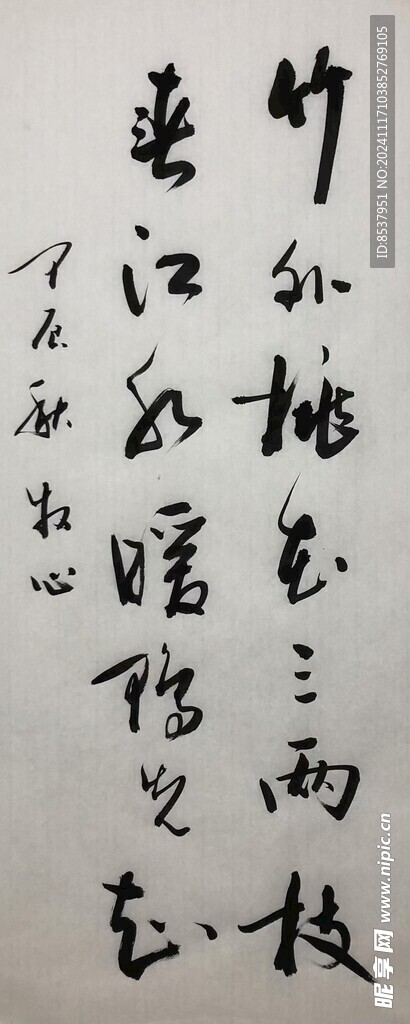 竹外桃花三两枝
春江水暖鸭先知
甲辰秋牧心
ID:8537951 NO:20241117103852769105
昵享网 www.nipic.cn